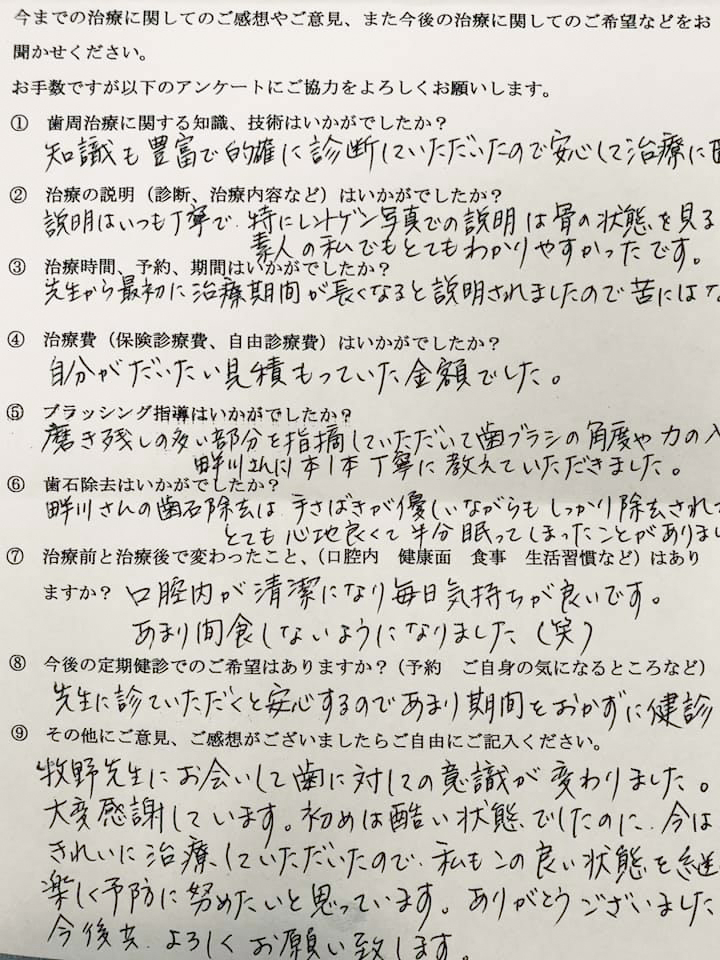 今までの治療に関してのご感想やご意見、また今後の治療に関してのご希望などをお
聞かせください。
お手数ですが以下のアンケートにご協力をよろしくお願いします。
① 歯周治療に関する知識、技術はいかがでしたか？
知識も豊富で的確に診断していただいたので安心して治療に
② 治療の説明（診断、治療内容など）はいかがでしたか？
説明はいつも丁寧で、特にレントゲン写真での説明は骨の状態を見る
素人の私でもとてもわかりやすかったです。
③ 治療時間、予約、期間はいかがでしたか？
先生から最初に治療期間が長くなると説明されましたので苦にはな
④ 治療費（保険診療費、自由診療費）はいかがでしたか？
自分がだいたい見積もっていた金額でした。
⑤ ブラッシング指導はいかがでしたか？
磨き残しの多い部分を指摘していただいて歯ブラシの角度や力の入
畔川さんに1本1本丁寧に教えていただきました。
⑥ 歯石除去はいかがでしたか？
畔川さんの歯石除去は、手さばきが優しいながらもしっかり除去されて
とても心地良くて半分眠ってしまったことがありまし
⑦ 治療前と治療後で変わったこと、（口腔内　健康面　食事　生活習慣など）はあり
ますか？ 口腔内が清潔になり毎日気持ちが良いです。
あまり間食しないようになりました（笑）
⑧ 今後の定期健診でのご希望はありますか？（予約　ご自身の気になるところなど）
先生に診ていただくと安心するのであまり期間をおかずに健診
⑨ その他にご意見、ご感想がございましたらご自由にご記入ください。
牧野先生にお会いして歯に対しての意識が変わりました。
大変感謝しています。初めは酷い状態でしたのに、今は
きれいに治療していただいたので、私もこの良い状態を継
楽しく予防に努めたいと思っています。ありがとうございました
今後共、よろしくお願い致します。